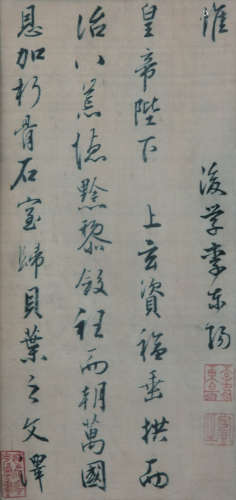 惟
皇帝陛下 上玄資福垂拱而
治八荒德黔黎斂衽而朝萬國
恩加朽骨石室歸貝葉之文澤
後学李东陽